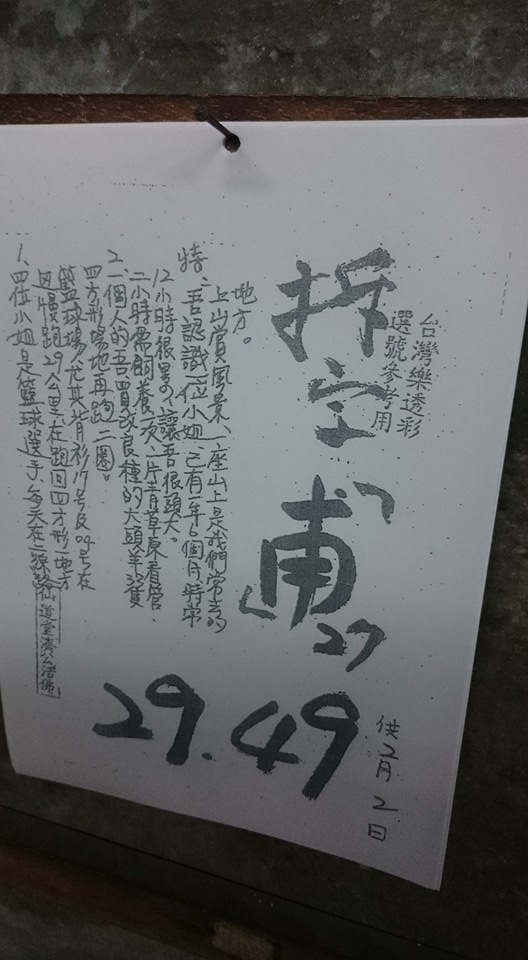 台灣樂透彩
選號參考用
拆字「甫」27
29.49
供2月2日
1、四位小姐是籃球選手,每天在二線路
邊慢跑29公里,在跑回四方形地方
籃球場尤其背衫17號及04號在
四方形場地再跑二圈。
2、一個人的吾買改良種的大頭羊3隻
二小時需飼養一次,一片青草原看管.
12小時很累,讓吾很頭大。
特:吾認識一位小姐,已有一年6個月,時常
上山賞風景、一座山上是我們常去的
地方。
仙道堂濟公活佛